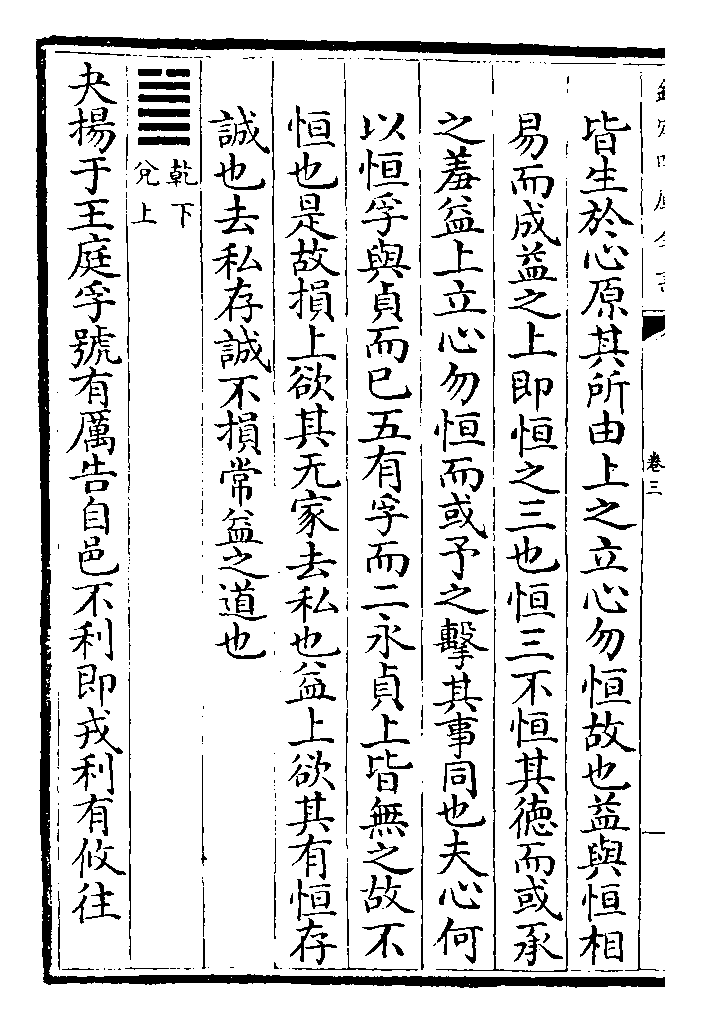 欽定四庫全書
卷三
皆生於心原其所由上之立心勿恒故也益與恒相
易而成益之上即恒之三也恒三不恒其德而或承
之羞益上立心勿恒而或予之擊其事同也夫心何
以恒孚與貞而已五有孚而二永貞上皆無之故不
恒也是故損上欲其无家去私也益上欲其有恒存
誠也去私存誠不損常益之道也
䷪
乾下
兊上
夬揚于王庭孚號有厲告自邑不利即戎利有攸往